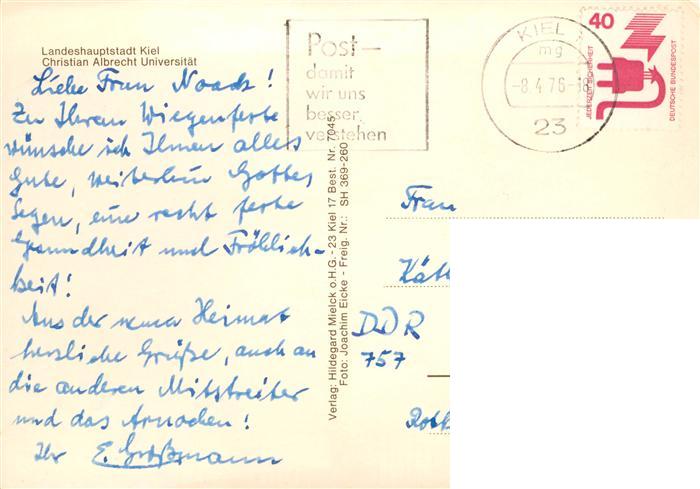 Landeshauptstadt Kiel
Christian Albrecht Universität
Liebe Frau Noack!
Zu Ihrem Wiegenfeste
wünsche ich Ihnen alles
Gute, weiterhin Gottes
Segen, eine recht feste
Gesundheit und Fröhlich-
keit!
Aus der neuen Heimat
herzliche Grüße, auch an
die anderen Mitstreiter
und das
Ihr E. Großmann
Post-
damit
wir uns
besser
verstehen
KIEL
mg
-8.4.76-18
23
40
JEDERZEIT SICHERHEIT
DEUTSCHE BUNDESPOST
Verlag: Hildegard Mielck o.H.G. - 23 Kiel 17 Best. Nr. 7045
Foto: Joachim Eicke - Freig. Nr.: SH 369-260
Frau
Kät
DDR
757